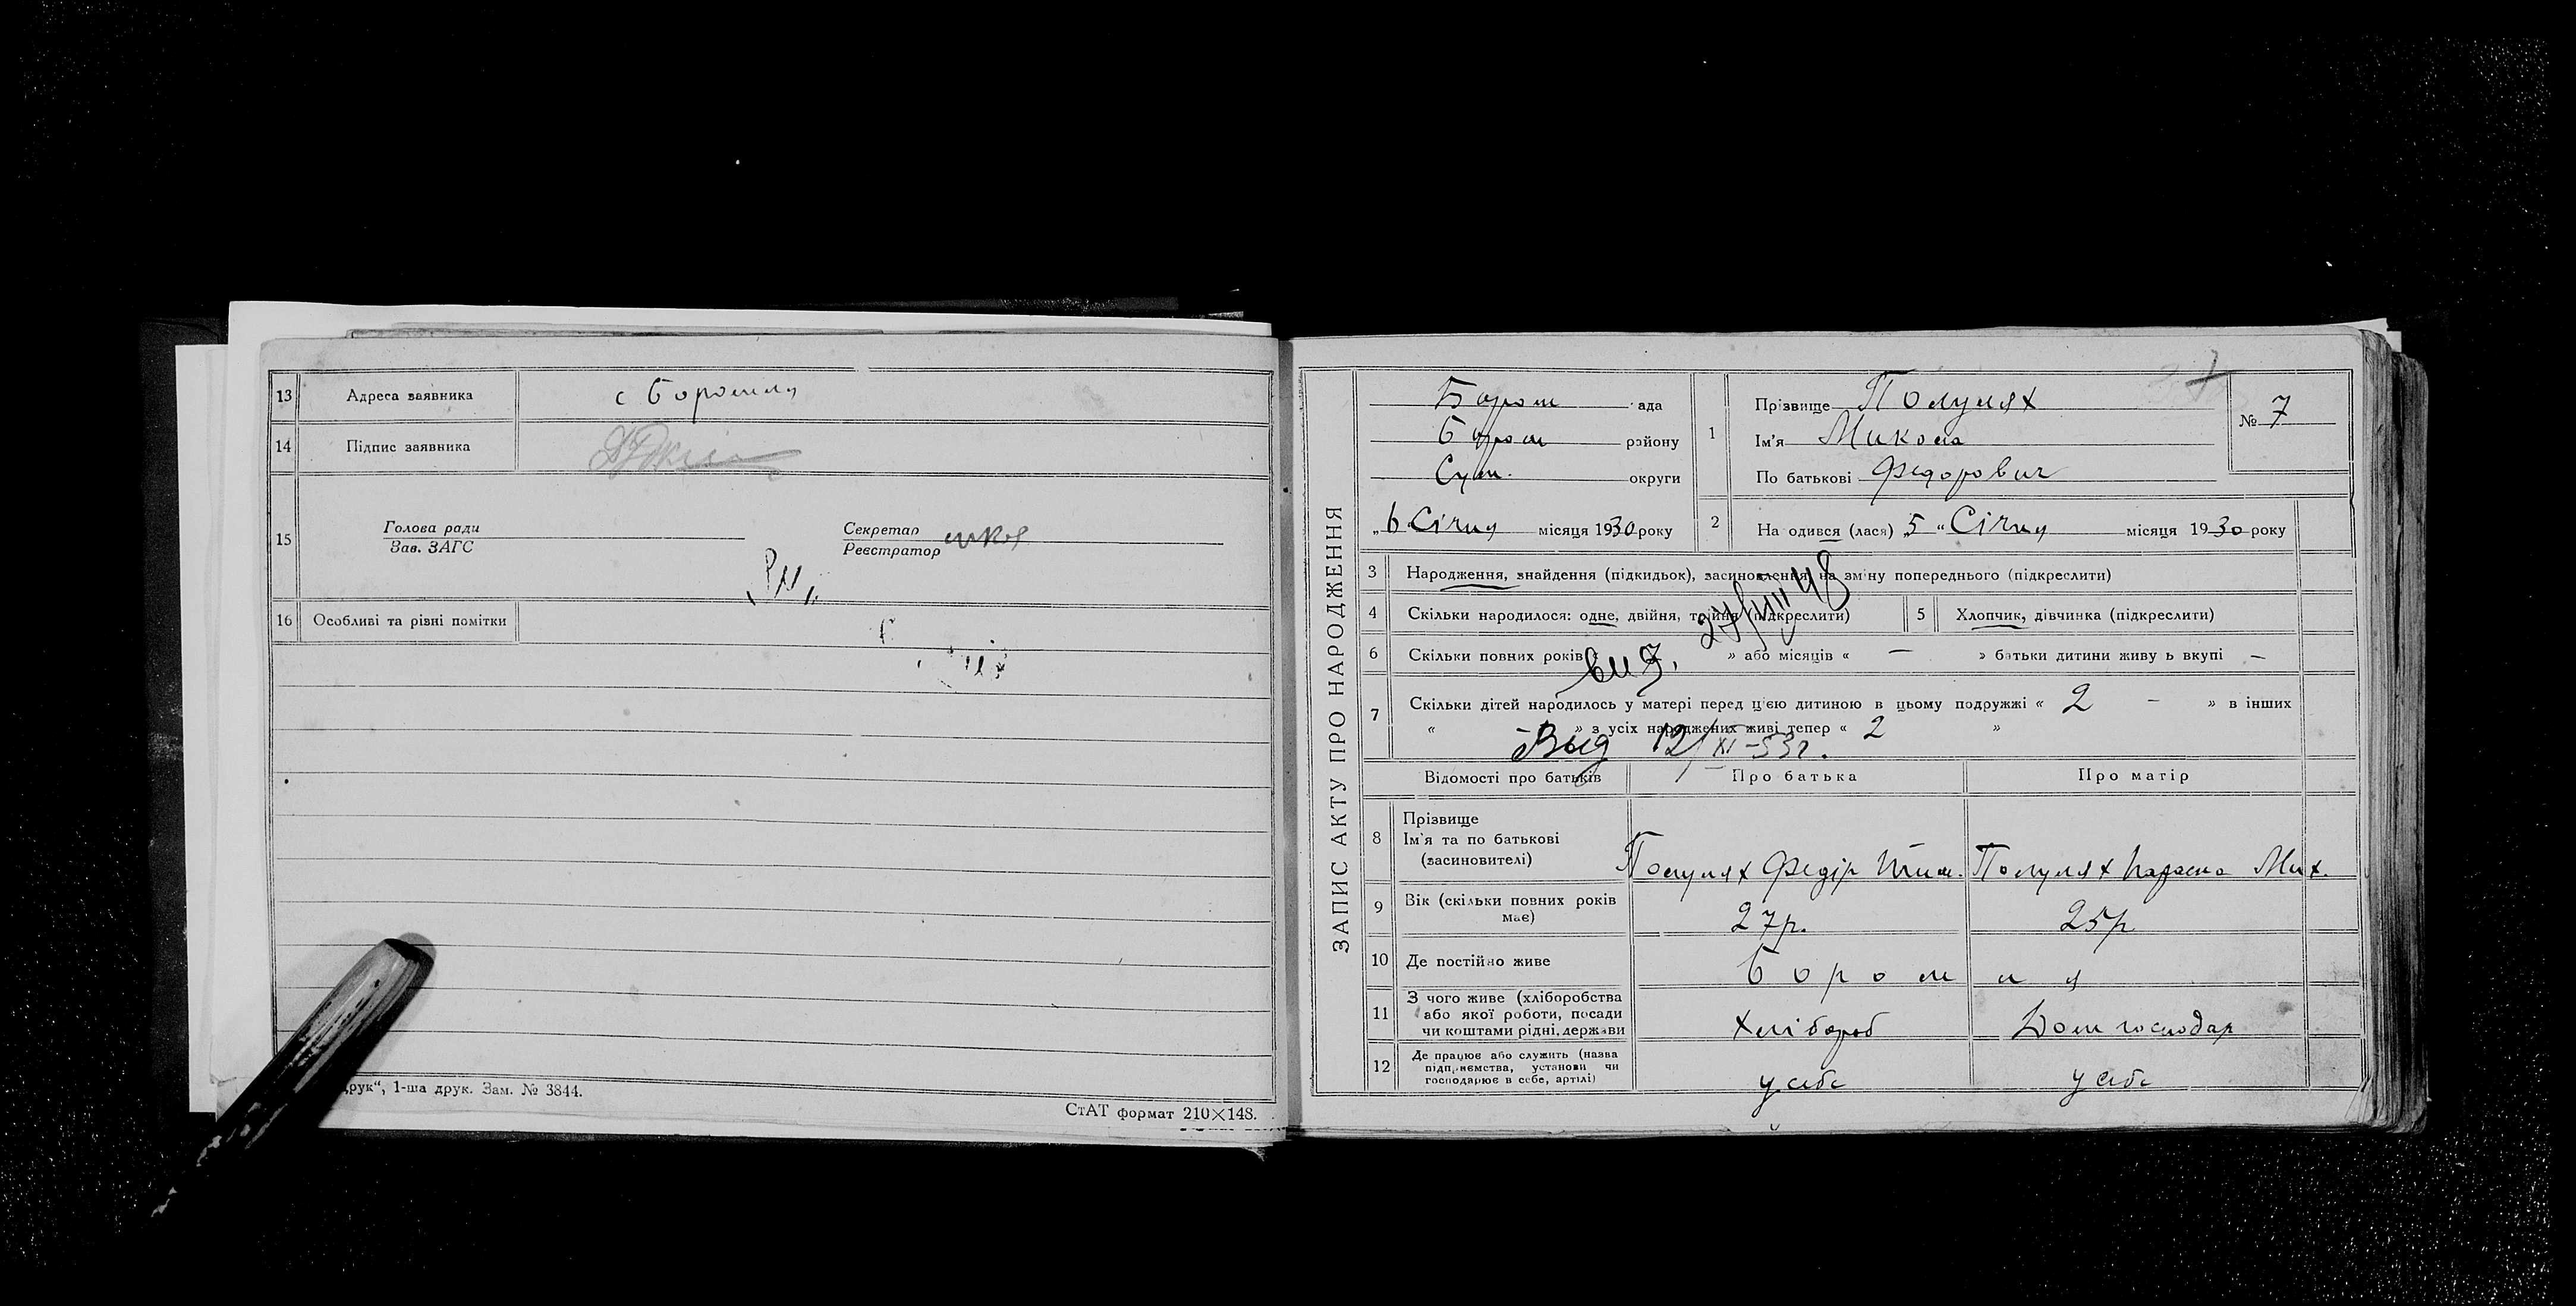 13 Адреса заявника с Боромля
14 Підпис заявника
15 Голова ради
Зав. ЗАГС
Секретар
Реєстратор
16 Особливі та рівні помітки
друк“, 1-ша друк. Зам. № 3844.
СтАТ формат 210×148.
ЗАПИС АКТУ ПРО НАРОДЖЕННЯ
Бором ада
Бором району
Сум. округи
„6 Січня місяця 1930 року
1 Прізвище Полулях
Ім'я Микола
По батькові Федорович
№ 7
2 На одився (лася) „5“ Січня місяця 1930 року
3 Народження, знайдення (підкидьок), засиновлення, на зміну попереднього (підкреслити)
4 Скільки народилося: одне, двійня, трійня (підкреслити) 5 Хлопчик, дівчинка (підкреслити)
вид. 27/VIII 48
6 Скільки повних років « » або місяців « — » батьки дитини живу ь вкупі —
7 Скільки дітей народилось у матері перед цією дитиною в цьому подружжі « 2 — » в інших
« » з усіх народжених живі тепер « 2 »
Выд 12/XI-53г.
Відомості про батьків Про батька Про матір
8 Прізвище
Ім'я та по батькові
(засиновителі)
Полулях Федір Тим. Полулях Параска Мих.
9 Вік (скільки повних років
має)
27р. 25р
10 Де постійно живе Боромля
11 З чого живе (хліборобства
або якої роботи, посади
чи коштами рідні, держави
Хлібороб Дом господар
12 Де працює або служить (назва
підприємства, установи чи
господарює в себе, артілі)
у себе у себе